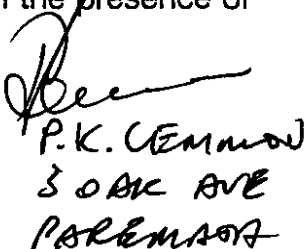 the presence of
P.K. LEMMON
3 OAK AVE
PAREMATA